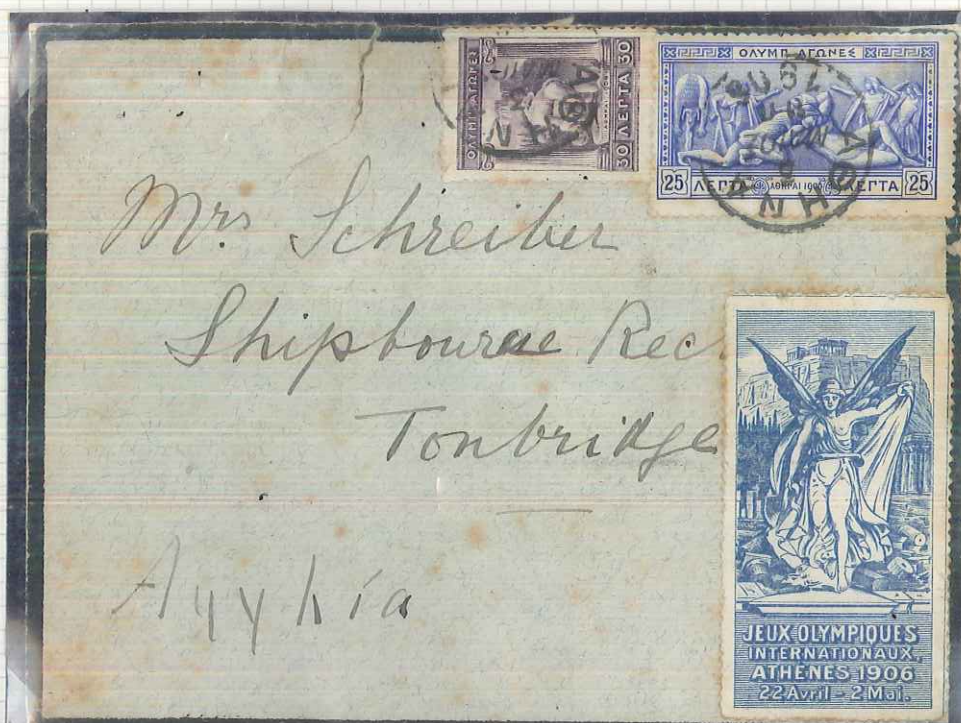 ΟΛΥΜΠ. ΑΓΩΝΕΣ
30 ΛΕΠΤΑ 30
ΟΛΥΜΠ. ΑΓΩΝΕΣ
25 ΛΕΠΤΑ ΑΘΗΝΑΙ 1906 ΛΕΠΤΑ 25
Mrs Schreiber
Shipbourne Rec
Tonbridge
Αγγλία
JEUX OLYMPIQUES
INTERNATIONAUX,
ATHÈNES 1906
22 Avril - 2 Mai.